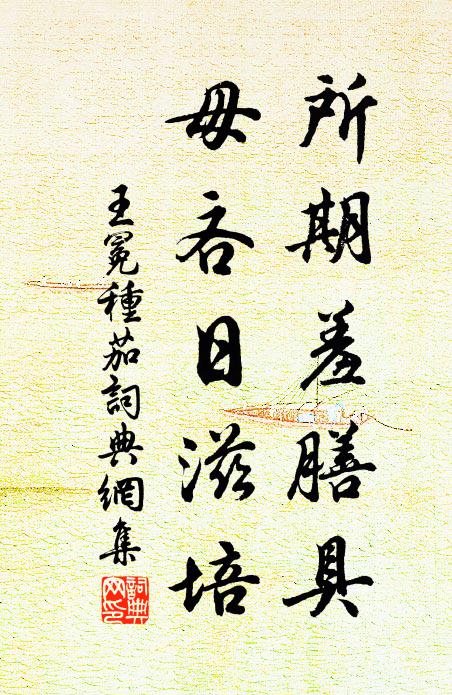 所期羞膳具
毋吝日滋培
王冕種茄詞典網集
詞典网印